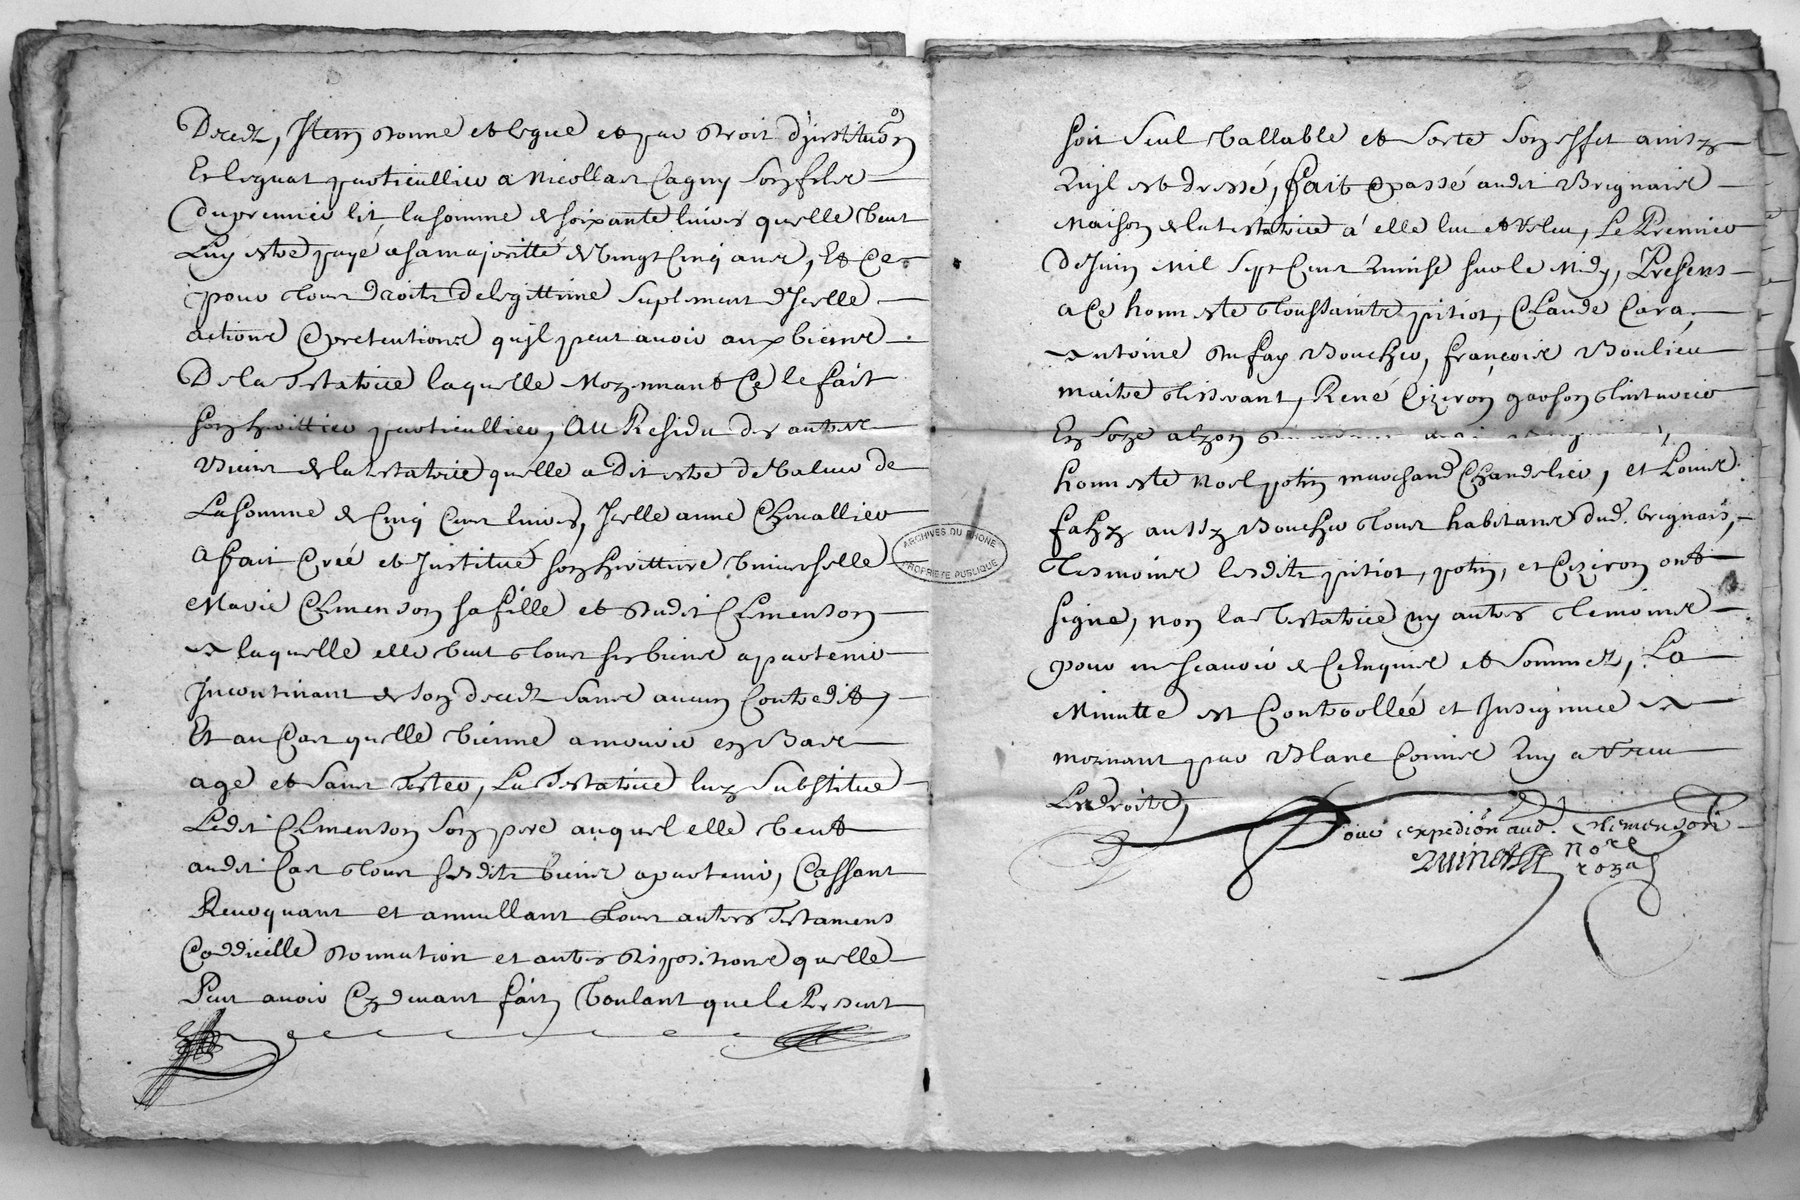 Deceds, Item donne et legue et par droit d'jnstituôn
Et legnat particullier a Nicollas Cagny son fils
du premier lit, la somme de soixante livres quelle veut
Luy estre payé a sa majoritté de vingt Cinq ans, Et Ce
pour tous droits de legittime suplement d'Jcelle
actions & pretentions qu'jl peut avoir aux biens
De la Testatrice laquelle Moyennant Ce le fait
son heritier particullier, Au Residu des autres
Biens de la testatrice quelle a Dit estre de Valeur de
La somme de Cinq Cens livres, Jcelle anne Chevallier
A fait Créé et Jnstitué son herittiere universelle
Marie Clemenson sa fille et dudit Clemenson
a laquelle elle veut tous ses biens apartenir
Jncontinant de son deceds sans aucun Contredit,
Et au Cas quelle vienne a mourir en Bas
age et sans Tester, La Testatrice luy substitue
Ledit Clemenson son pere auquel elle veut
audit Cas tous sesdits biens apartenir, Cassant
Revoquant et annullant tous autres Testamens
Coddicille donnation et autres dispositions quelle
Peut avoir Cy devant fait, Voulant que le Present
soit seul vallable et sorte son effet ainsy
quil est dressé, fait & passé audit Brignais
Maison de la testatrice a elle lu et Relu, Le Premier
De Juin Mil sept Cens quinse sur le Midy, Presens
a Ce honneste Toussaints pitiot, Claude Cara,
Antoine Dufay Boucher, françois Boulieu
maitre tisserant, René Ciziron garson teinturier
En soye
honneste Noel potin marchand Chandelier, et Louis
fahy aussy Boucher tous habitans dud. brignais,
Tesmoins lesdits pitiot, potin, et Ciziron ont
signe, non la Testatrice ny autres temoins
pour ne scavoir de Ce Enquis et sommez, La
Minutte est Controollée et Jnsignuee a
mornant par Blanc Commis quy a Receu
Les droits,
pour expediôn aud. Clemenson
Quinet
Nore
royal
ARCHIVES DU RHONE
PROPRIETE PUBLIQUE